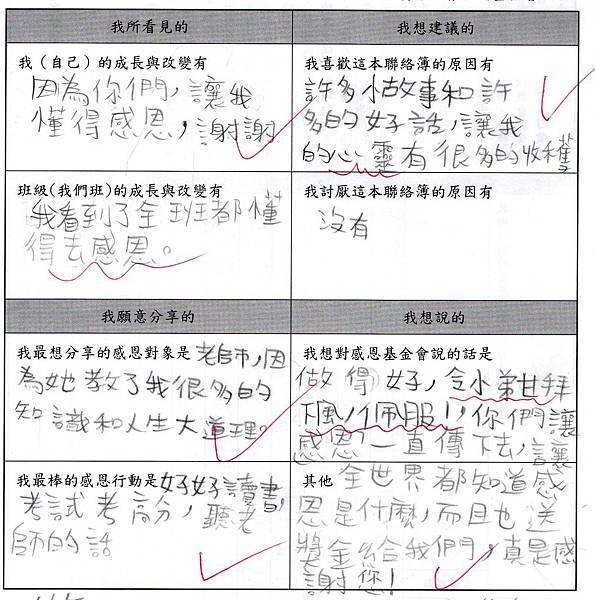 我所看見的
我想建議的
我（自己）的成長與改變有
因為你們，讓我
懂得感恩，謝謝
我喜歡這本聯絡簿的原因有
許多小故事和許
多的好話，讓我
的心靈有很多的收穫
班級(我們班)的成長與改變有
我看到了全班都懂
得去感恩。
我討厭這本聯絡簿的原因有
沒有
我願意分享的
我想說的
我最想分享的感恩對象是老師，因
為她教了我很多的
知識和人生大道理。
我想對感恩基金會說的話是
做得好，令小弟甘拜
下風，佩服！，你們讓
感恩一直傳下去，讓
我最棒的感恩行動是好好讀書，
考試考高分，聽老
師的話
其他 全世界都知道感
恩是什麼，而且也送
獎金給我們，真是感
謝您！